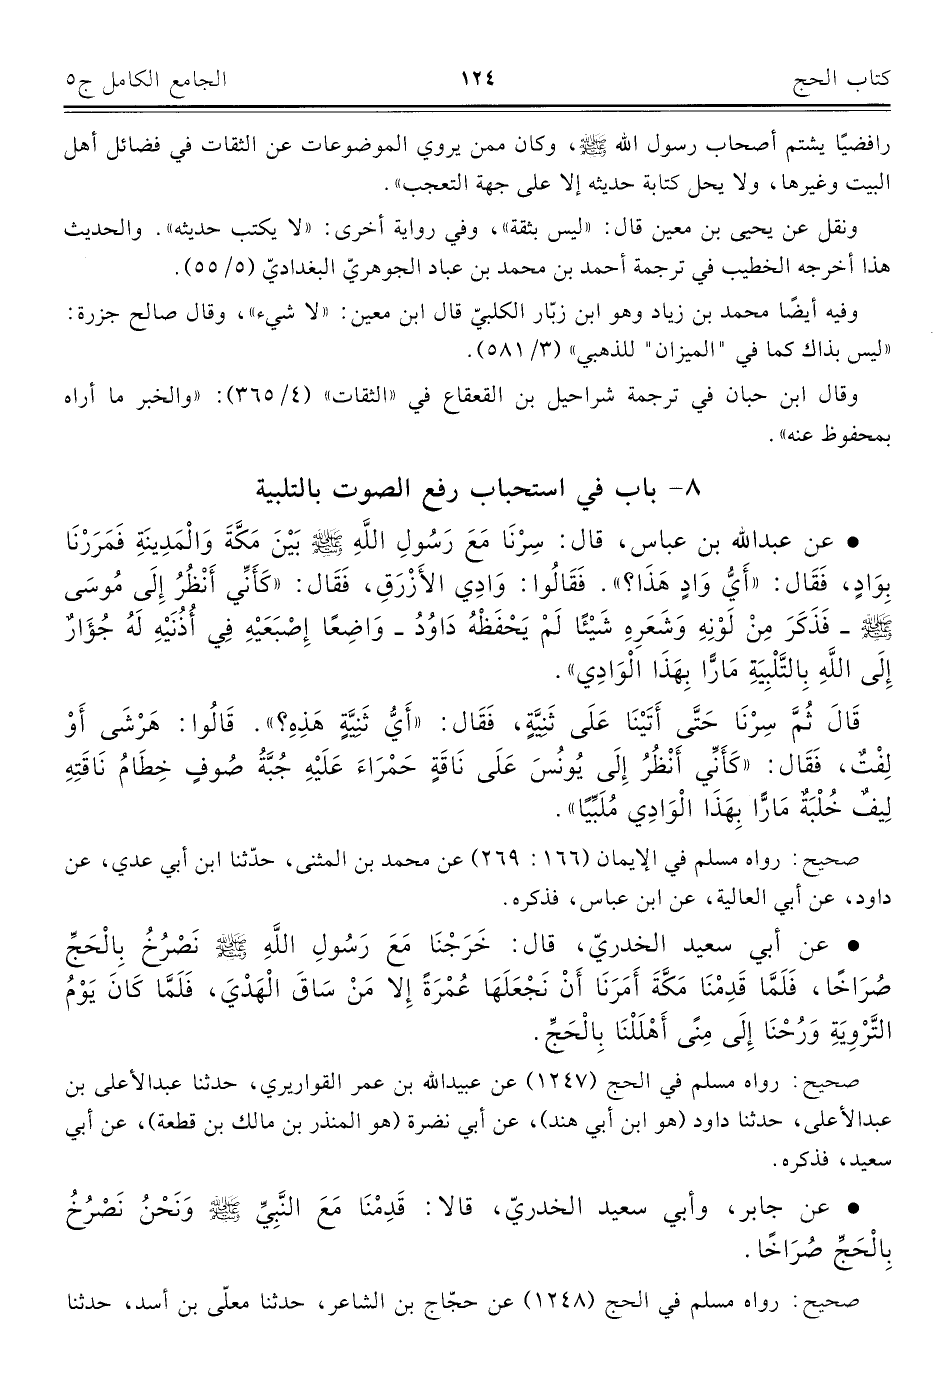 كتاب الحج ١٢٤ الجامع الكامل ج٥
رافضيًا يشتم أصحاب رسول الله ﷺ، وكان ممن يروي الموضوعات عن الثقات في فضائل أهل
البيت وغيرها، ولا يحل كتابة حديثه إلا على جهة التعجب».
ونقل عن يحيى بن معين قال: «ليس بثقة»، وفي رواية أخرى: «لا يكتب حديثه». والحديث
هذا أخرجه الخطيب في ترجمة أحمد بن محمد بن عباد الجوهريّ البغداديّ (٥/ ٥٥).
وفيه أيضًا محمد بن زياد وهو ابن زبّار الكلبيّ قال ابن معين: «لا شيء»، وقال صالح جزرة:
«ليس بذاك كما في "الميزان" للذهبي» (٣/ ٥٨١).
وقال ابن حبان في ترجمة شراحيل بن القعقاع في «الثقات» (٤/ ٣٦٥): «والخبر ما أراه
بمحفوظ عنه».
٨- باب في استحباب رفع الصوت بالتلبية
• عن عبدالله بن عباس، قال: سِرْنَا مَعَ رَسُولِ اللَّهِ ﷺ بَيْنَ مَكَّةَ وَالْمَدِينَةِ فَمَرَرْنَا
بِوَادٍ، فَقَال: «أَيُّ وَادٍ هَذَا؟». فَقَالُوا: وَادِي الأَزْرَقِ، فَقَال: «كَأَنِّي أَنْظُرُ إِلَى مُوسَى
ﷺ ـ فَذَكَرَ مِنْ لَوْنِهِ وَشَعَرِهِ شَيْئًا لَمْ يَحْفَظْهُ دَاوُدُ ـ وَاضِعًا إِصْبَعَيْهِ فِي أُذُنَيْهِ لَهُ جُؤَارٌ
إِلَى اللَّهِ بِالتَّلْبِيَةِ مَارًّا بِهَذَا الْوَادِي».
قَالَ ثُمَّ سِرْنَا حَتَّى أَتَيْنَا عَلَى ثَنِيَّةٍ، فَقَال: «أَيُّ ثَنِيَّةٍ هَذِهِ؟». قَالُوا: هَرْشَى أَوْ
لِفْتٌ، فَقَال: «كَأَنِّي أَنْظُرُ إِلَى يُونُسَ عَلَى نَاقَةٍ حَمْرَاءَ عَلَيْهِ جُبَّةُ صُوفٍ خِطَامُ نَاقَتِهِ
لِيفٌ خُلْبَةٌ مَارًّا بِهَذَا الْوَادِي مُلَبِّيًا».
صحيح: رواه مسلم في الإيمان (١٦٦ : ٢٦٩) عن محمد بن المثنى، حدّثنا ابن أبي عدي، عن
داود، عن أبي العالية، عن ابن عباس، فذكره.
• عن أبي سعيد الخدريّ، قال: خَرَجْنَا مَعَ رَسُولِ اللَّهِ ﷺ نَصْرُخُ بِالْحَجِّ
صُرَاخًا، فَلَمَّا قَدِمْنَا مَكَّةَ أَمَرَنَا أَنْ نَجْعَلَهَا عُمْرَةً إِلا مَنْ سَاقَ الْهَدْيَ، فَلَمَّا كَانَ يَوْمُ
التَّرْوِيَةِ وَرُحْنَا إِلَى مِنًى أَهْلَلْنَا بِالْحَجِّ.
صحيح: رواه مسلم في الحج (١٢٤٧) عن عبيدالله بن عمر القواريري، حدثنا عبدالأعلى بن
عبدالأعلى، حدثنا داود (هو ابن أبي هند)، عن أبي نضرة (هو المنذر بن مالك بن قطعة)، عن أبي
سعيد، فذكره.
• عن جابر، وأبي سعيد الخدريّ، قالا: قَدِمْنَا مَعَ النَّبِيِّ ﷺ وَنَحْنُ نَصْرُخُ
بِالْحَجِّ صُرَاخًا.
صحيح: رواه مسلم في الحج (١٢٤٨) عن حجّاج بن الشاعر، حدثنا معلّى بن أسد، حدثنا